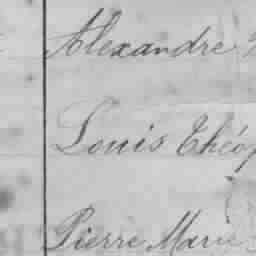 Alexandre
Louis Théop
Pierre Marie